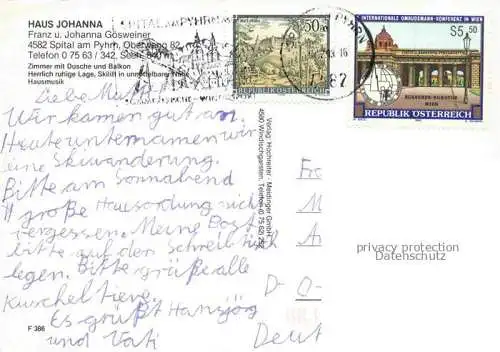 HAUS JOHANNA
Franz u. Johanna Gösweiner
4582 Spital am Pyhrn, Oberweng 82
Telefon 0 75 63 / 342, Seen
Zimmer mit Dusche und Balkon
Herrlich ruhige Lage, Skilift in unmittelbarer Nähe
Hausmusik
SPITAL AM PYHRN
50
REPUBLIK ÖSTERREICH
PYHRN
INTERNATIONALE OMBUDSMANN-KONFERENZ IN WIEN
S5,50
ÄUSSERES BURGTOR
WIEN
REPUBLIK ÖSTERREICH
Liebe Mutti
Wir kamen gut an.
Heute unternamen wir
eine Skiwanderung.
Bitte am Sonnabend
große Hausordung nich
vergessen. Meine Post
bitte auf den Schreibtisch
legen. Bitte grüße alle
Kuscheltiere.
Es grüßt Hansjörg
und Vati
Verlag: Hochreiter - Meidinger GmbH
4580 Windischgarsten, Telefon (0 75 62) 252
D-O-
Deut
privacy protection
Datenschutz
F 386